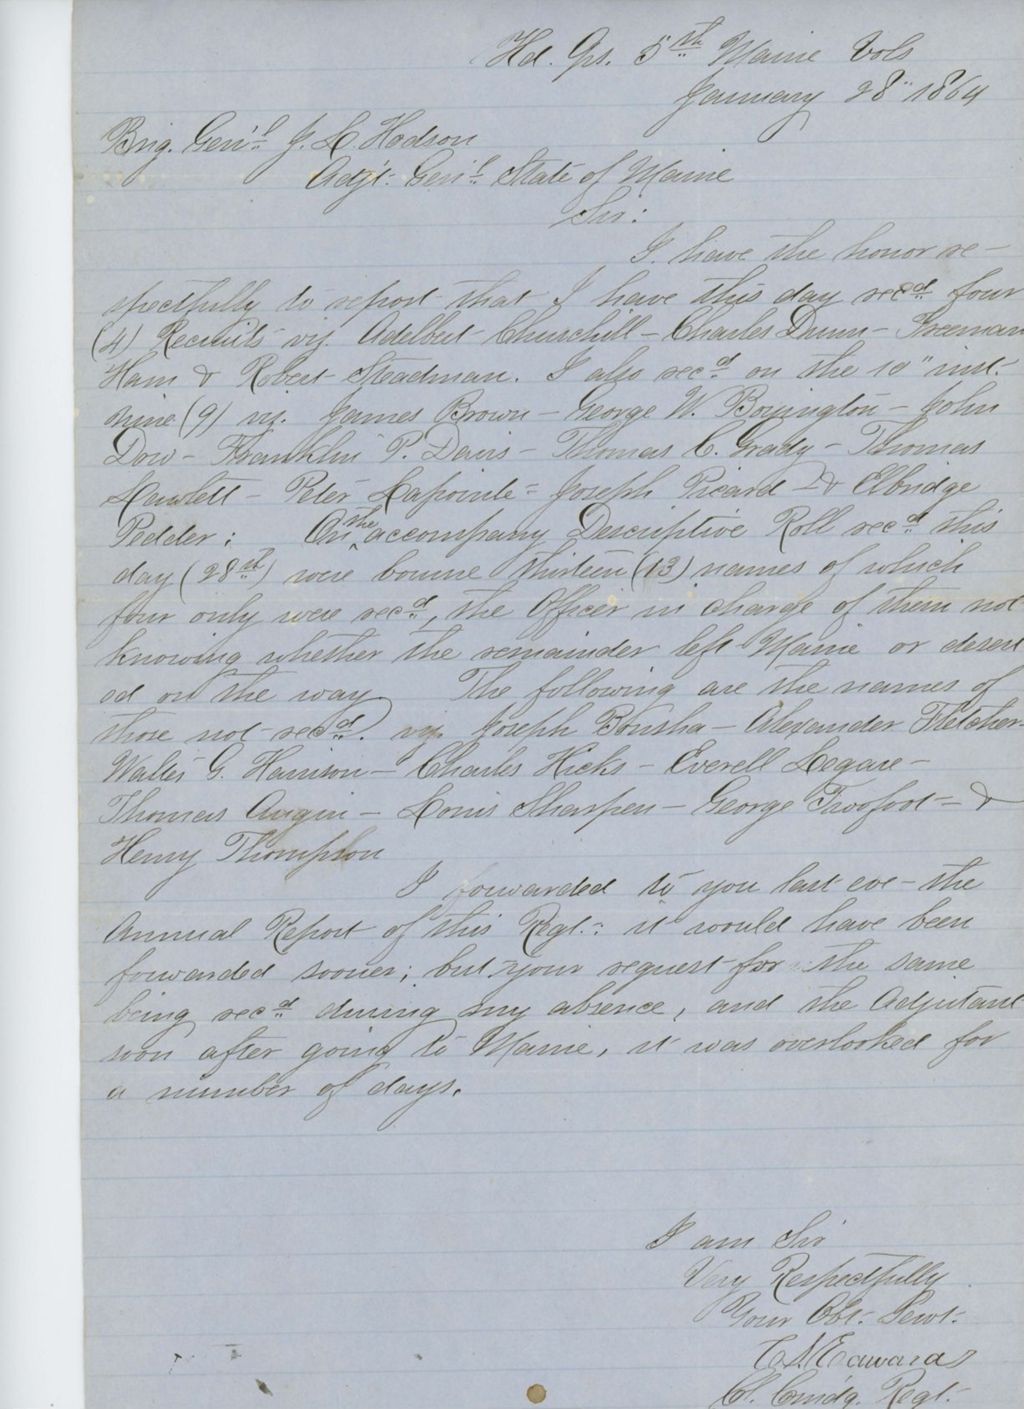 Hd. Qrs. 5th Maine Vols
January 28" 1864
Brig. Gen'l J. L. Hodsdon
Adjt. Gen'l State of Maine
Sir:
I have the honor re-
spectfully to report that I have this day recd. four
(4) Recruits viz. Adelbert Churchill - Charles Dunn - Freeman
Ham & Robert Steadman. I also recd on the 10" inst.
nine (9) viz. James Brown - George W. Boyington - John
Dow - Franklin P. Davis - Thomas C. Grady - Thomas
Hewlett - Peter Lapointe - Joseph Picard - & Elbridge
Pedder: On the accompany Descriptive Roll recd this
day (28th) were bourne thirteen (13) names of which
four only were recd, the Officer in charge of them not
knowing whether the remainder left Maine or desert
ed on the way. The following are the names of
those not recd. viz. Joseph Bousha - Alexander Fletcher
Walter G. Harrison - Charles Hicks - Everell Legare -
Thomas Augin - Louis Sharpen - George Twofoot - &
Henry Thompson
I forwarded to you last eve - the
Annual Report of this Regt.: it would have been
forwarded sooner; but your request for the same
being recd during my absence, and the Adjutant
soon after going to Maine, it was overlooked for
a number of days.
I am Sir
Very Respectfully
Your Obt. Servt.
C S Edwards
Col. Cmdg. Regt.